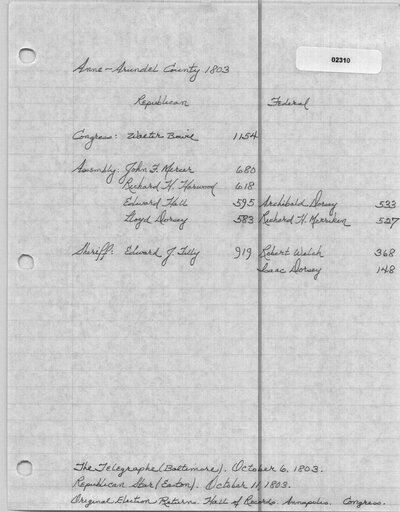 02310
Anne-Arundel County 1803
Republican Federal
Congress: Walter Bowie 1154
Assembly: John F. Mercer 680
Richard H. Harwood 618
Edward Hall 595 Archibald Dorsey 533
Lloyd Dorsey 583 Richard H. Merriken 527
Sheriff: Edward J. Tilly 919 Robert Welsh 368
Isaac Dorsey 148
The Telegraphe (Baltimore). October 6, 1803.
Republican Star (Easton). October 11, 1803.
Original Election Returns. Hall of Records. Annapolis. Congress.